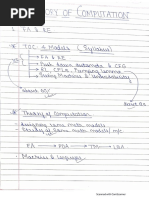 THEORY OF COMPUTATION
1. FA & RE
TOC 4 Models (Syllabus)
FA & RE
Push down automata & CFG
RL, CFLs, Pumping Lemma
Turing Machines & Undecidability
Theory of Computation
Designing some math models
Study of some math models / m/c
FA → PDA → TM → LBA
Machines & Languages